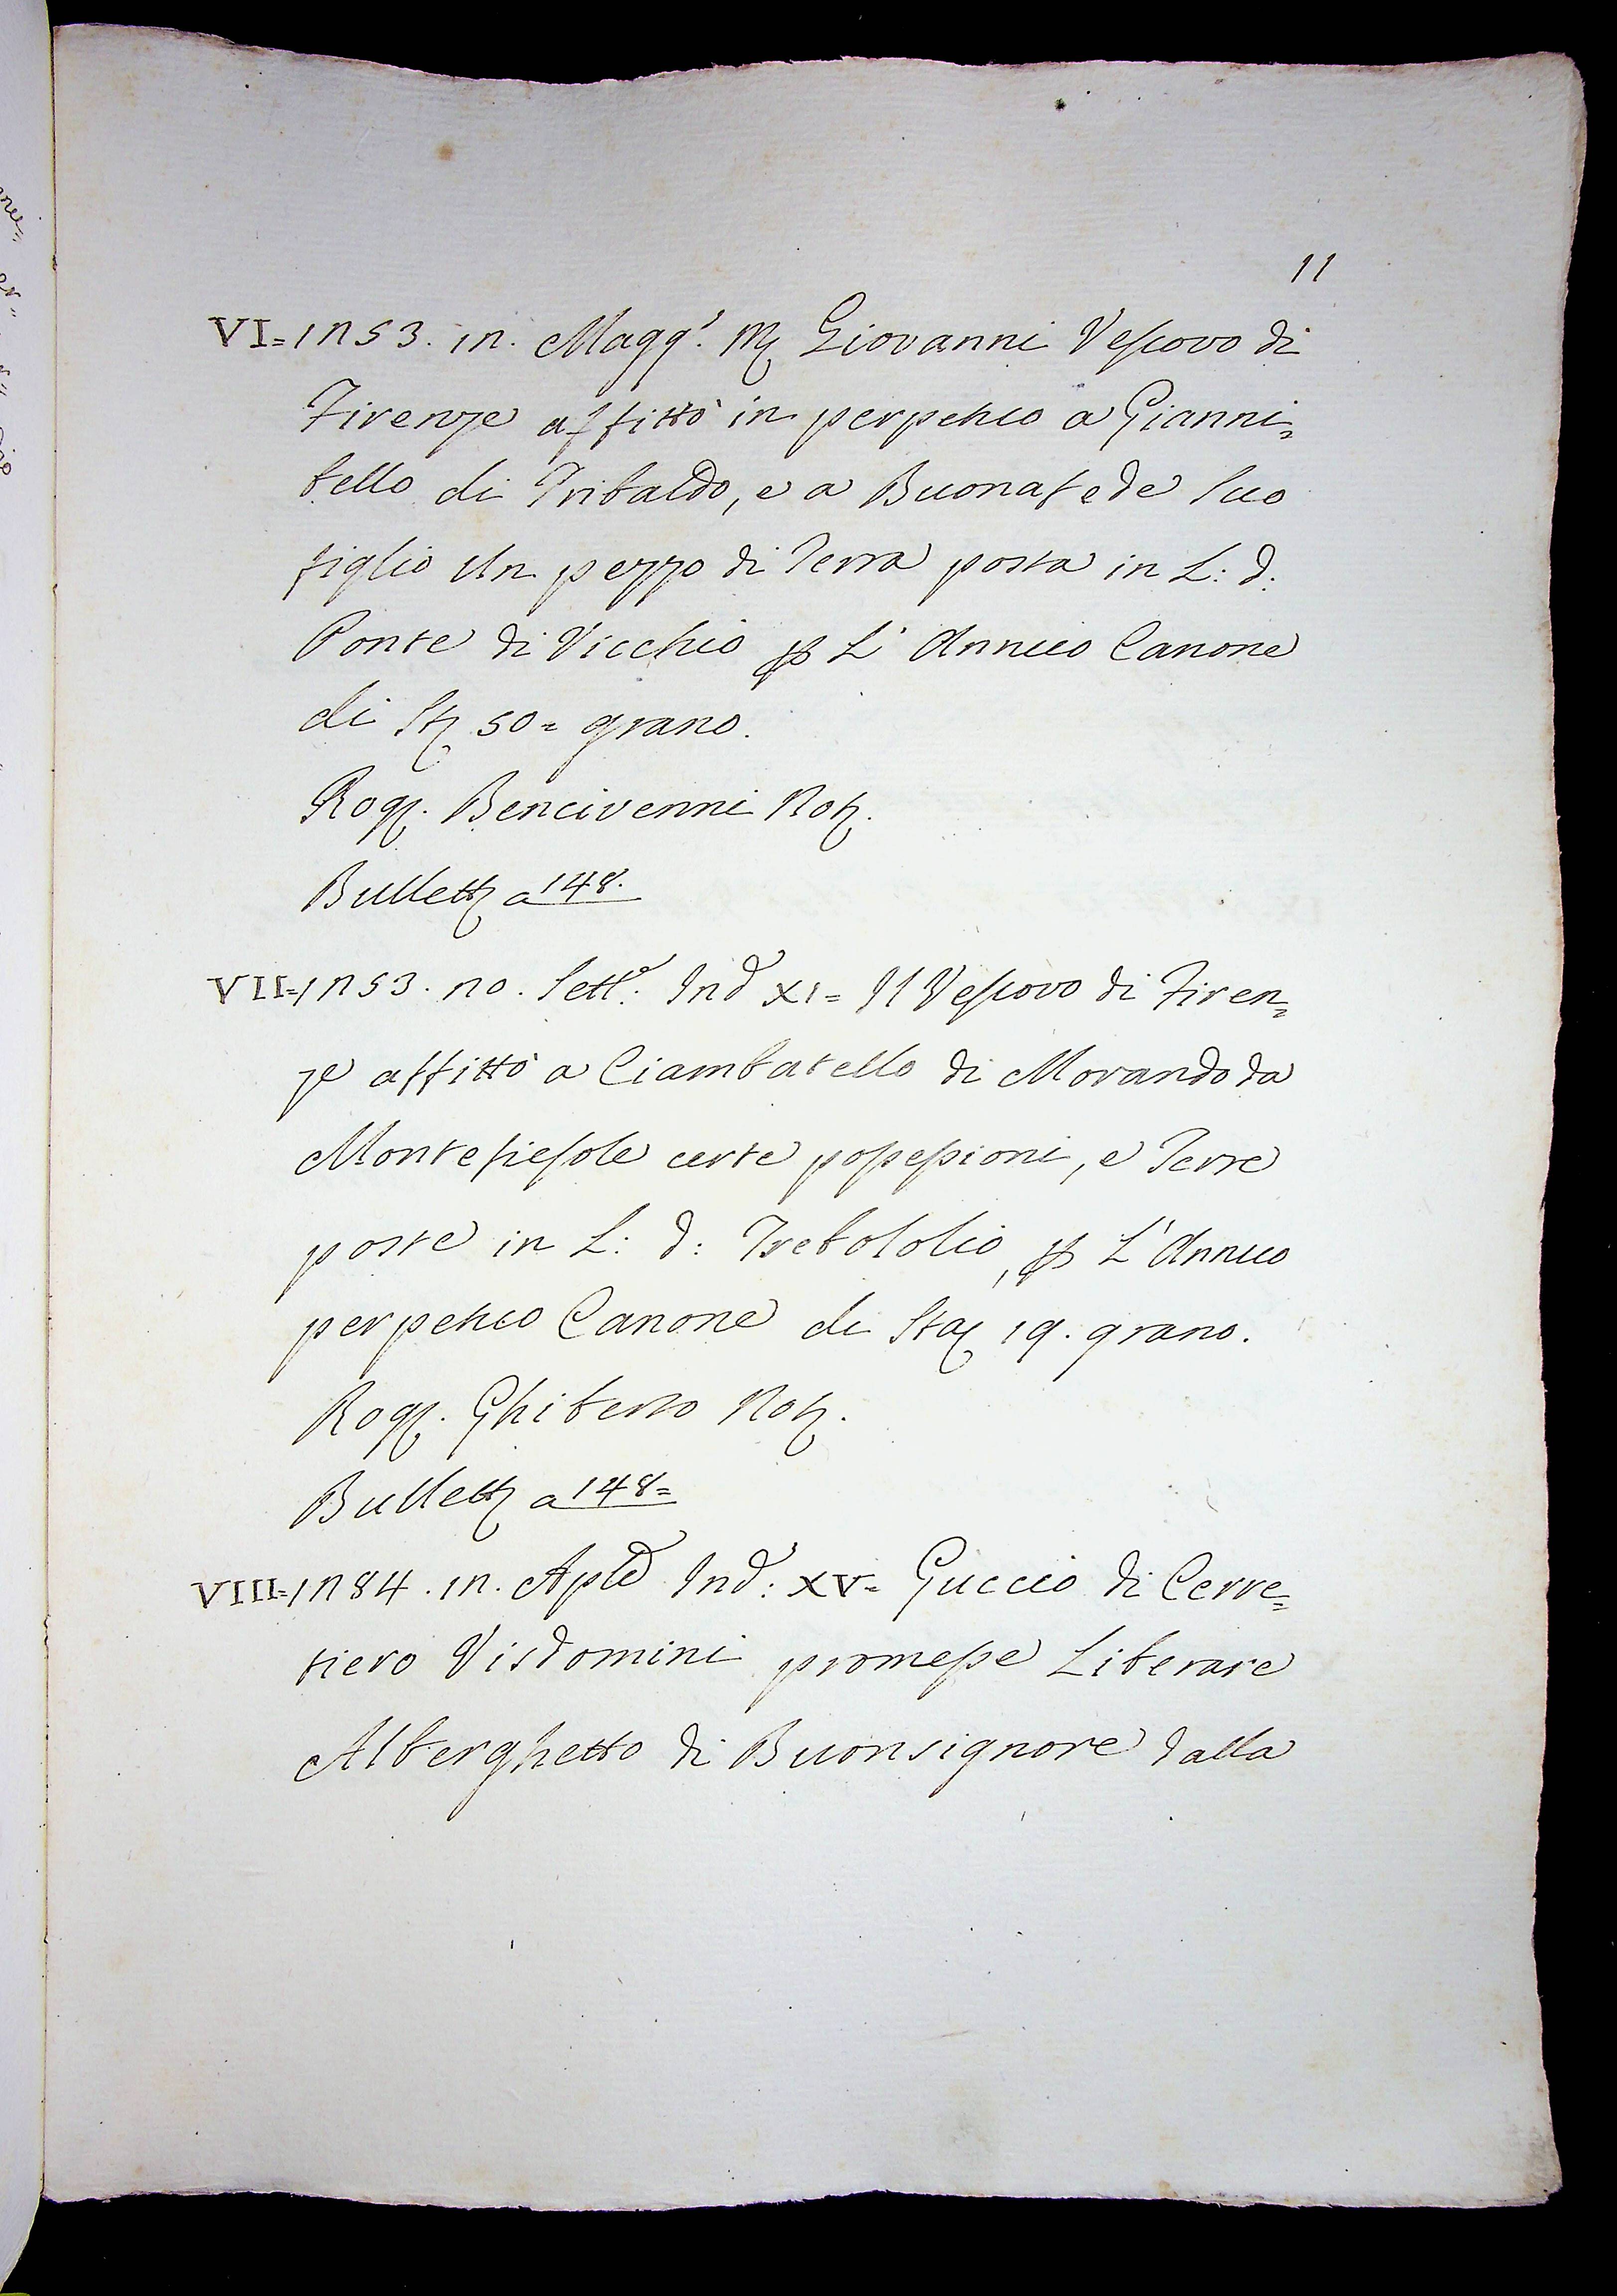 11
VI=1253. 12. Magg.° M. Giovanni Vescovo di
Firenze affittò in perpetuo a Gianni=
bello di Tribaldo, e a Buonafede suo
figlio Un pezzo di Terra posta in L: d:
Ponte di Vicchio p L' Annuo Canone
di St 50= grano.
Rog. Bencivenni Not.
Bullett a 148.
VII=1253. 20. Sett.e Ind XI= Il Vescovo di Firen=
ze affittò a Ciambatello di Morando da
Montefiesole certe possessioni, e Terre
poste in L: d: Trebololio, p L' Annuo
perpetuo Canone di Sta 19. grano.
Rog. Ghiberto Not.
Bullett a 148=
VIII=1284. 12. Aple Ind: XV= Guccio di Cerre=
tiero Visdomini promesse Liberare
Alberghetto di Buonsignore dalla